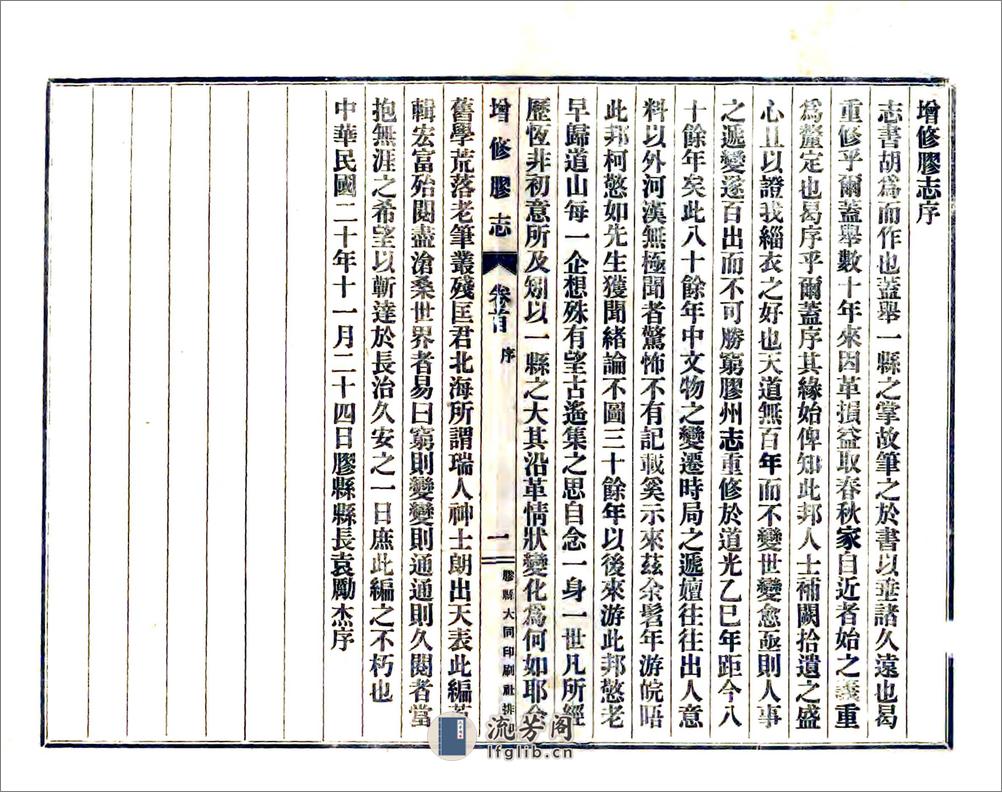 增修膠志序
志書胡爲而作也蓋舉一縣之掌故筆之於書以垂諸久遠也曷
重修乎爾蓋舉數十年來因革損益取春秋家自近者始之義重
爲釐定也曷序乎爾蓋序其緣始俾知此邦人士補闕拾遺之盛
心且以證我緇衣之好也天道無百年而不變世變愈亟則人事
之遞變遂百出而不可勝窮膠州志重修於道光乙巳年距今八
十餘年矣此八十餘年中文物之變遷時局之遞嬗往往出人意
料以外河漢無極聞者驚怖不有記載奚示來茲余髫年游皖晤
此邦柯憼如先生獲聞緒論不圖三十餘年以後來游此邦憼老
早歸道山每一企想殊有望古遙集之思自念一身一世凡所經
歷恆非初意所及矧以一縣之大其沿革情狀變化爲何如耶余
增修膠志 卷首 序 一 膠縣大同印刷社排
舊學荒落老筆叢殘匡君北海所謂瑞人神士朗出天表此編蒐
輯宏富殆閱盡滄桑世界者易曰窮則變變則通通則久閱者當
抱無涯之希望以蘄達於長治久安之一日庶此編之不朽也
中華民國二十年十一月二十四日膠縣縣長袁勵杰序
流芳阁
lfglib.cn